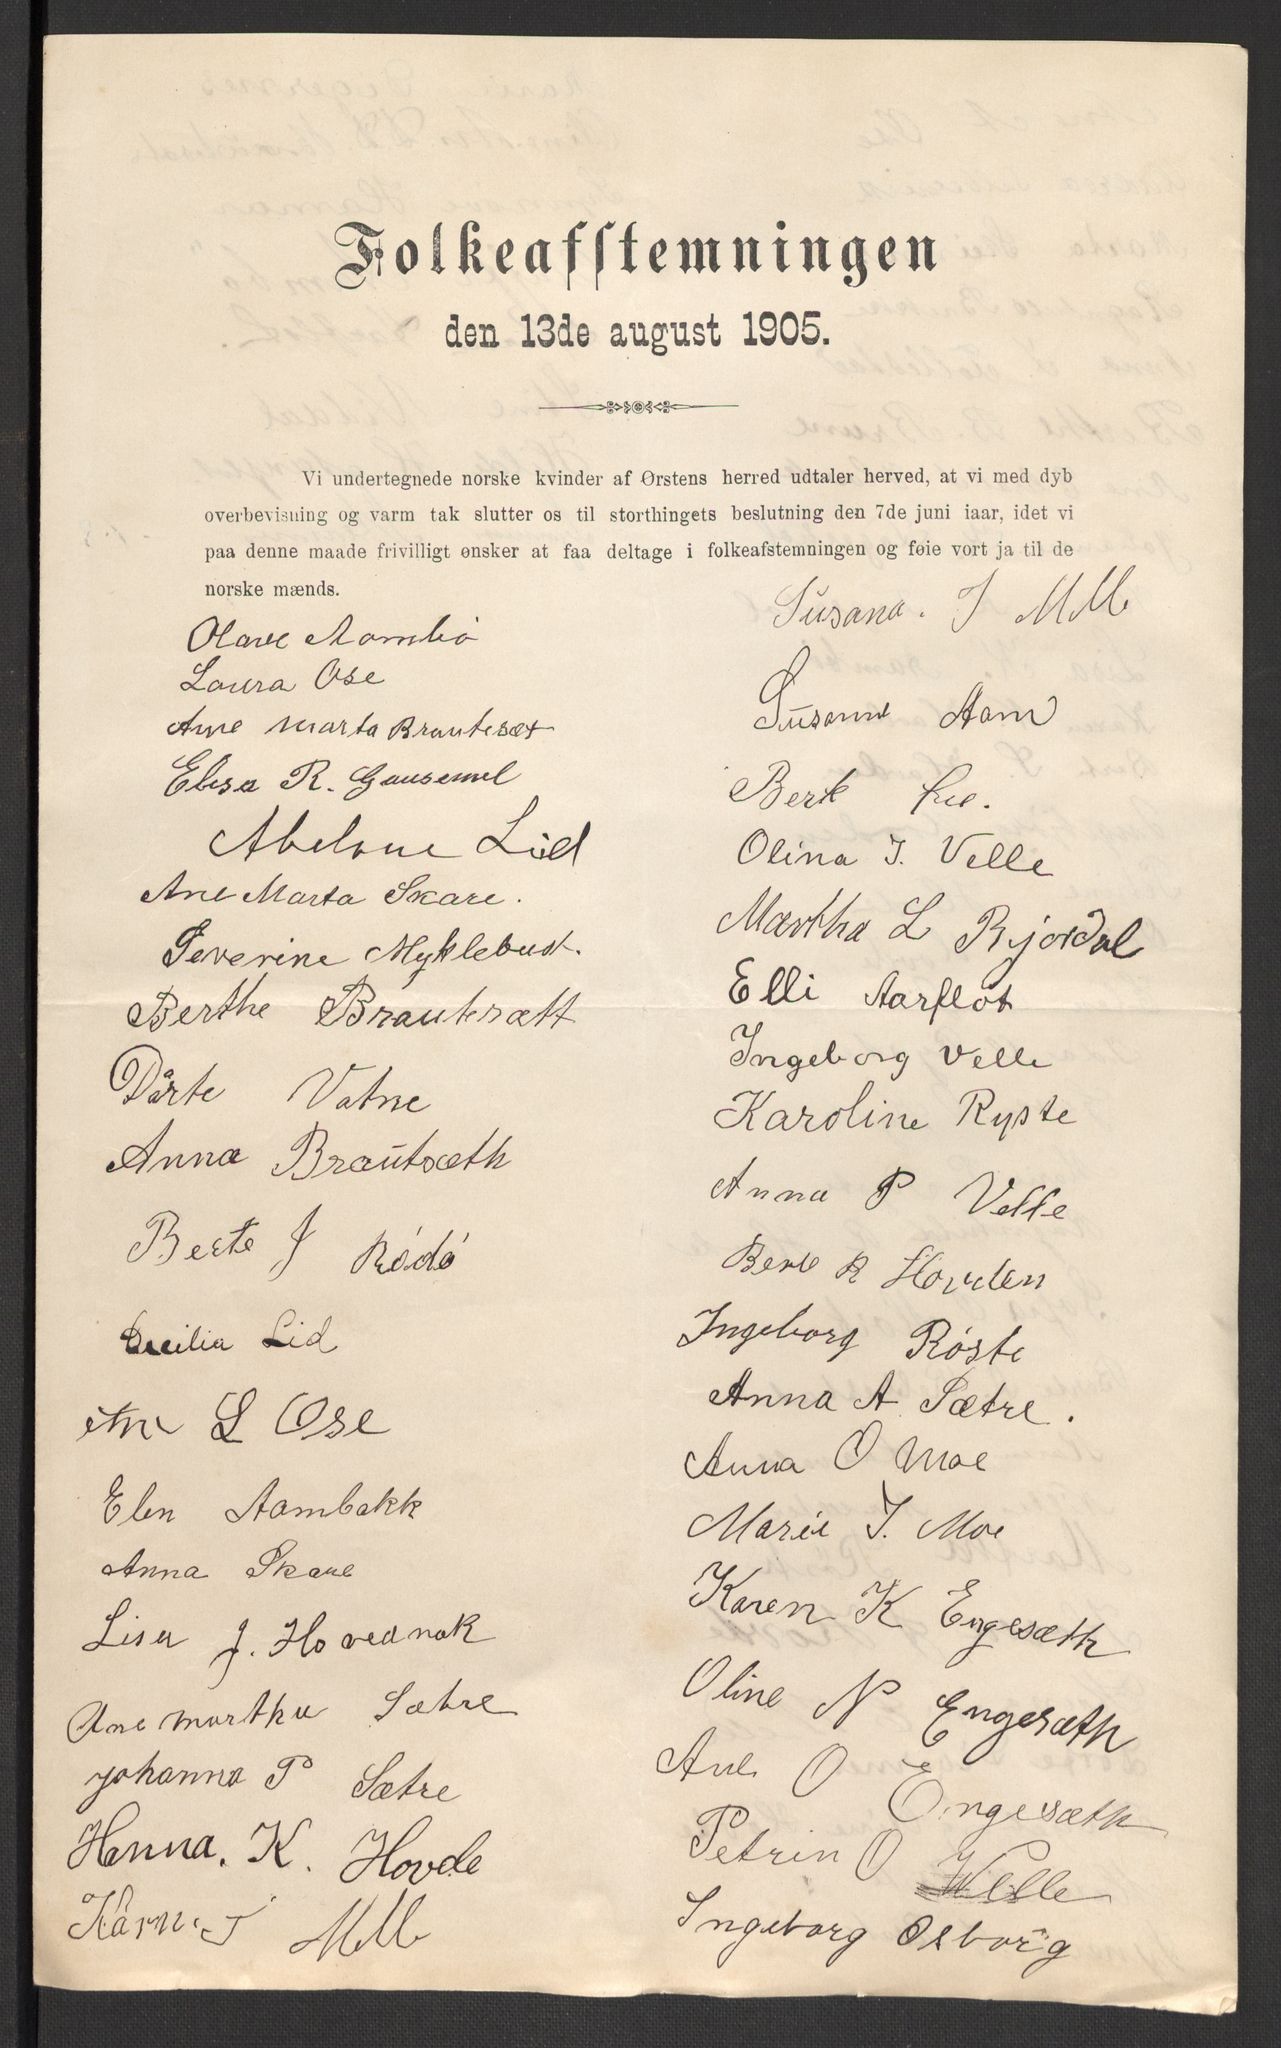 Folkeafstemningen
den 13de august 1905.
Vi undertegnede norske kvinder af Ørstens herred udtaler herved, at vi med dyb
overbevisning og varm tak slutter os til storthingets beslutning den 7de juni iaar, idet vi
paa denne maade frivilligt ønsker at faa deltage i folkeafstemningen og føie vort ja til de
norske mænds.
Olave Aambø
Laura Ose
Ane Marta Brautesæt
Elisa R. Gausemel
Abelone Lid
Ane Marta Skare.
Severine Myklebust.
Berthe Brautsætt
Dårte Vatne
Anna Brautsæth
Berte J Rødø
Cecilia Lid
L Ose
Elen Aambakk
Anna Skare
Lisa J. Hovednak
Ane martha Sætre
Johanna P Sætre
Hanna. K. Hovde
J MMo
Susana. J MMo
Susanne Aam
Berte
Olina J. Velle
Martha L Rjørdal
Elli Aarflot
Ingeborg Velle
Karoline Ryste
Anna P Velle
Berte R Hovden
Ingeborg Røste
Anna A Sætre.
Anna O Moe
Marie J. Moe
Karen K Engesæth
Oline N Engesæth
Ane O Engesæth
Petrin O Velle
Ingeborg Osborg